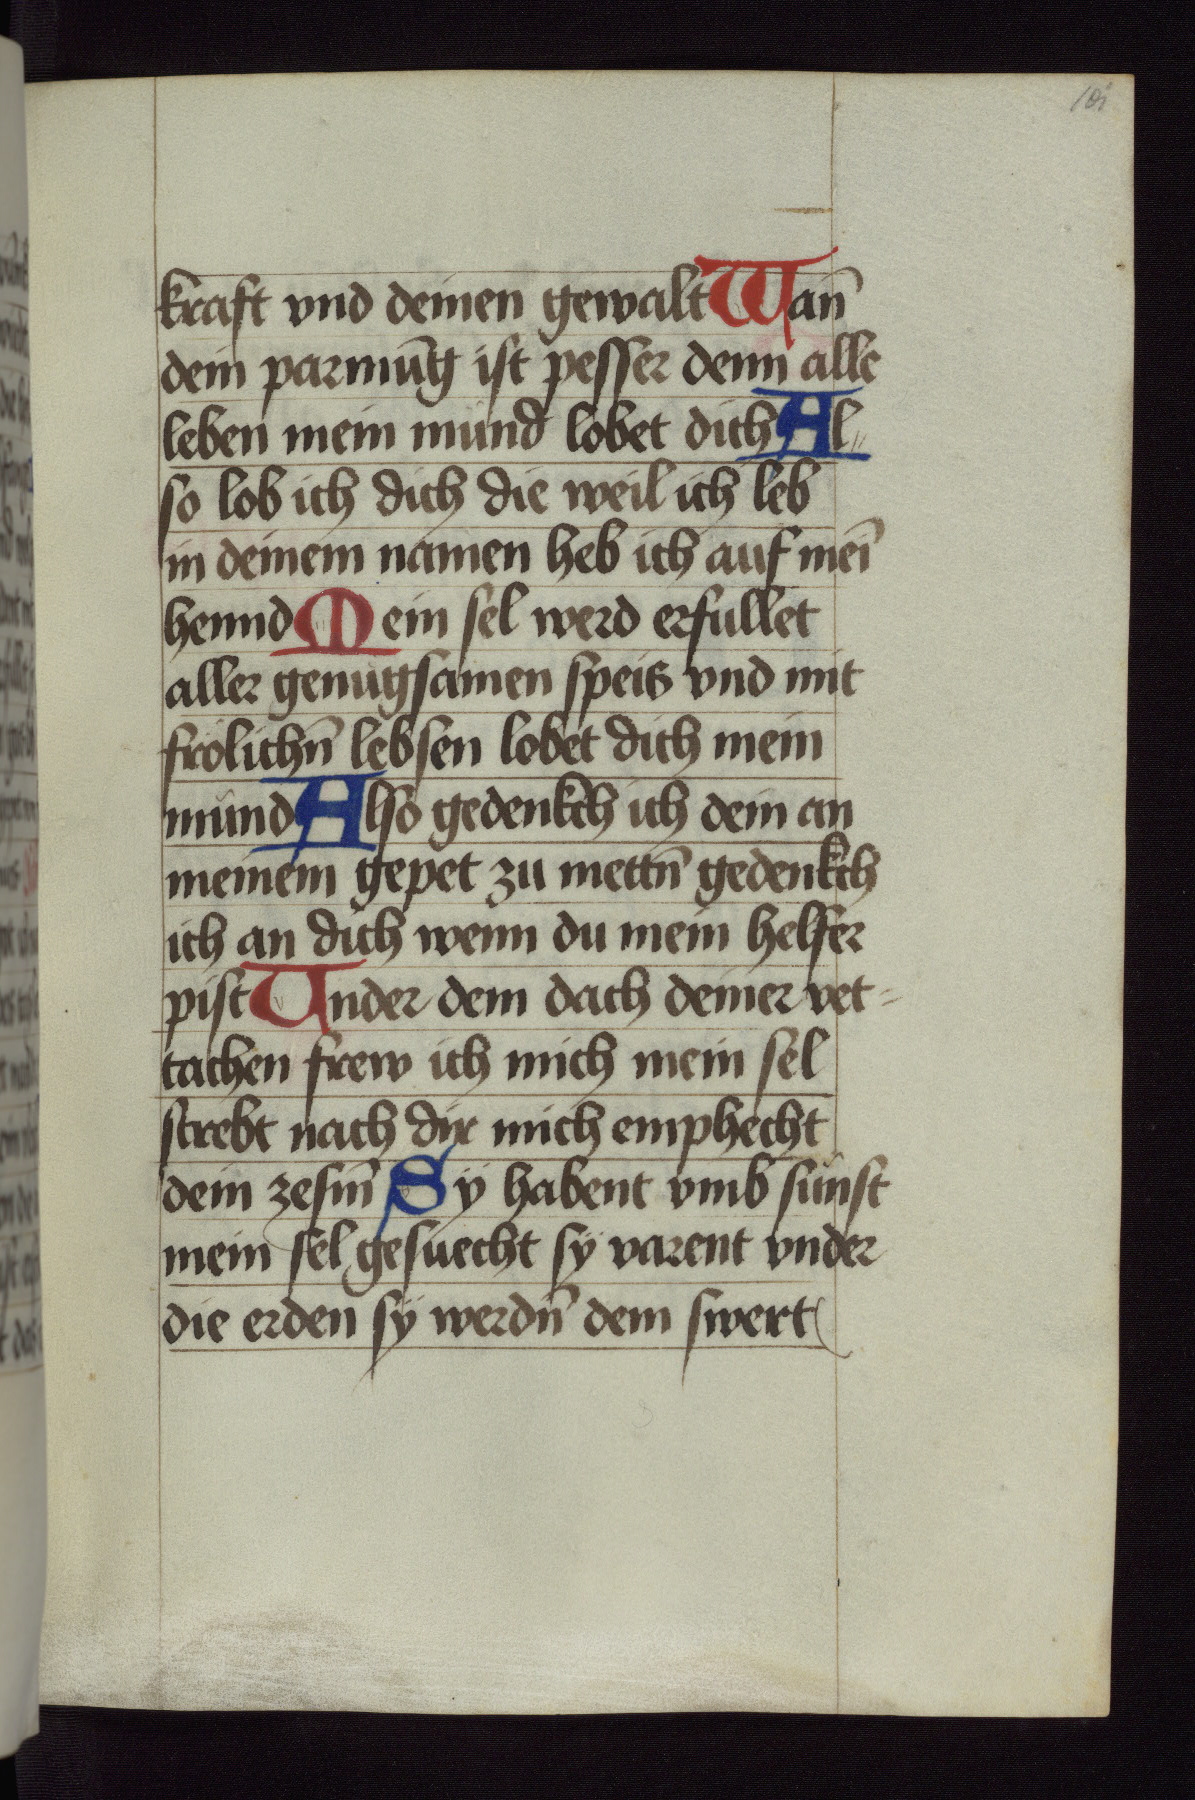 101
kraft vnd deinen gewalt Wañ
dein parmūg ist pesser denn alle
leben mein mund lobet dich Al„
so lob ich dich die weil ich leb
in deinem namen heb ich auf meī
hennd Mein sel werd erfullet
aller genugsamen speis vnd mit
frölichñ lebsen lobet dich mein
mund Also gedenkch ich dein an
meinem gepet zu mettñ gedenkch
ich an dich wenn du mein helfer
pist Under dem dach deiner vet=
tachen frew ich mich mein sel
strebt nach dir mich emphecht
dein zesm̄ Sÿ habent vmb sünst
mein sel gesuecht sÿ varent vnder
die erden sÿ werdñ dem swert